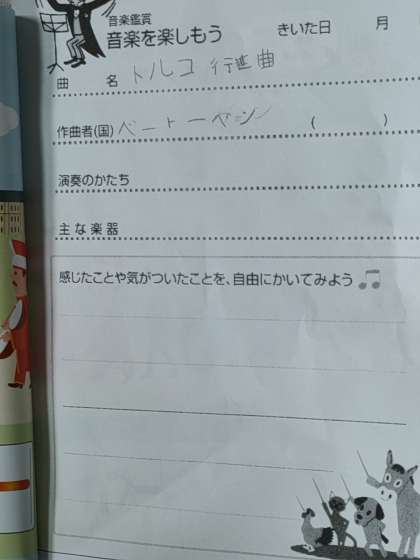 音楽鑑賞
音楽を楽しもう きいた日 月
曲 名 トルコ行進曲
作曲者(国) ベートーベン ( )
演奏のかたち
主な楽器
感じたことや気がついたことを、自由にかいてみよう